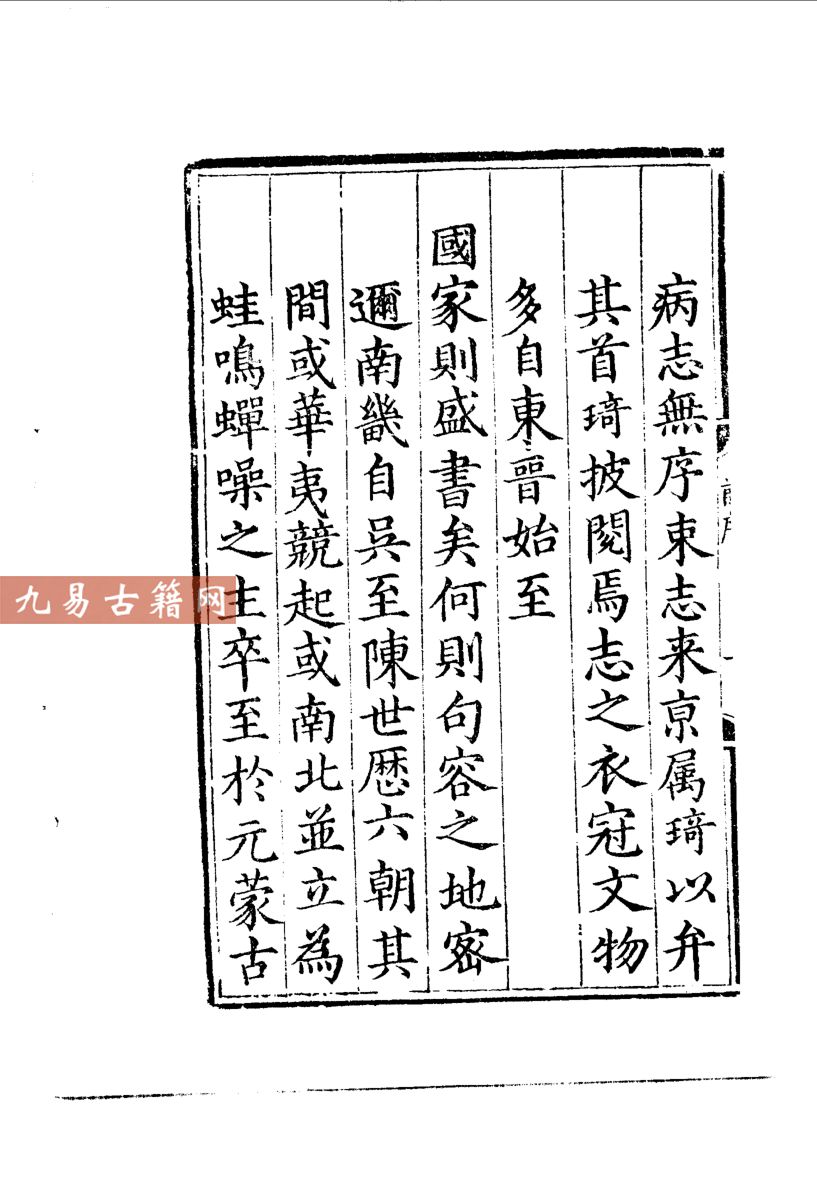 病志無序束志来京属琦以弁
其首琦披閱焉志之衣冠文物
多自東晉始至
國家則盛書矣何則句容之地密
邇南畿自吳至陳世歷六朝其
間或華夷競起或南北並立為
蛙鳴蟬噪之主卒至於元蒙古
九易古籍网